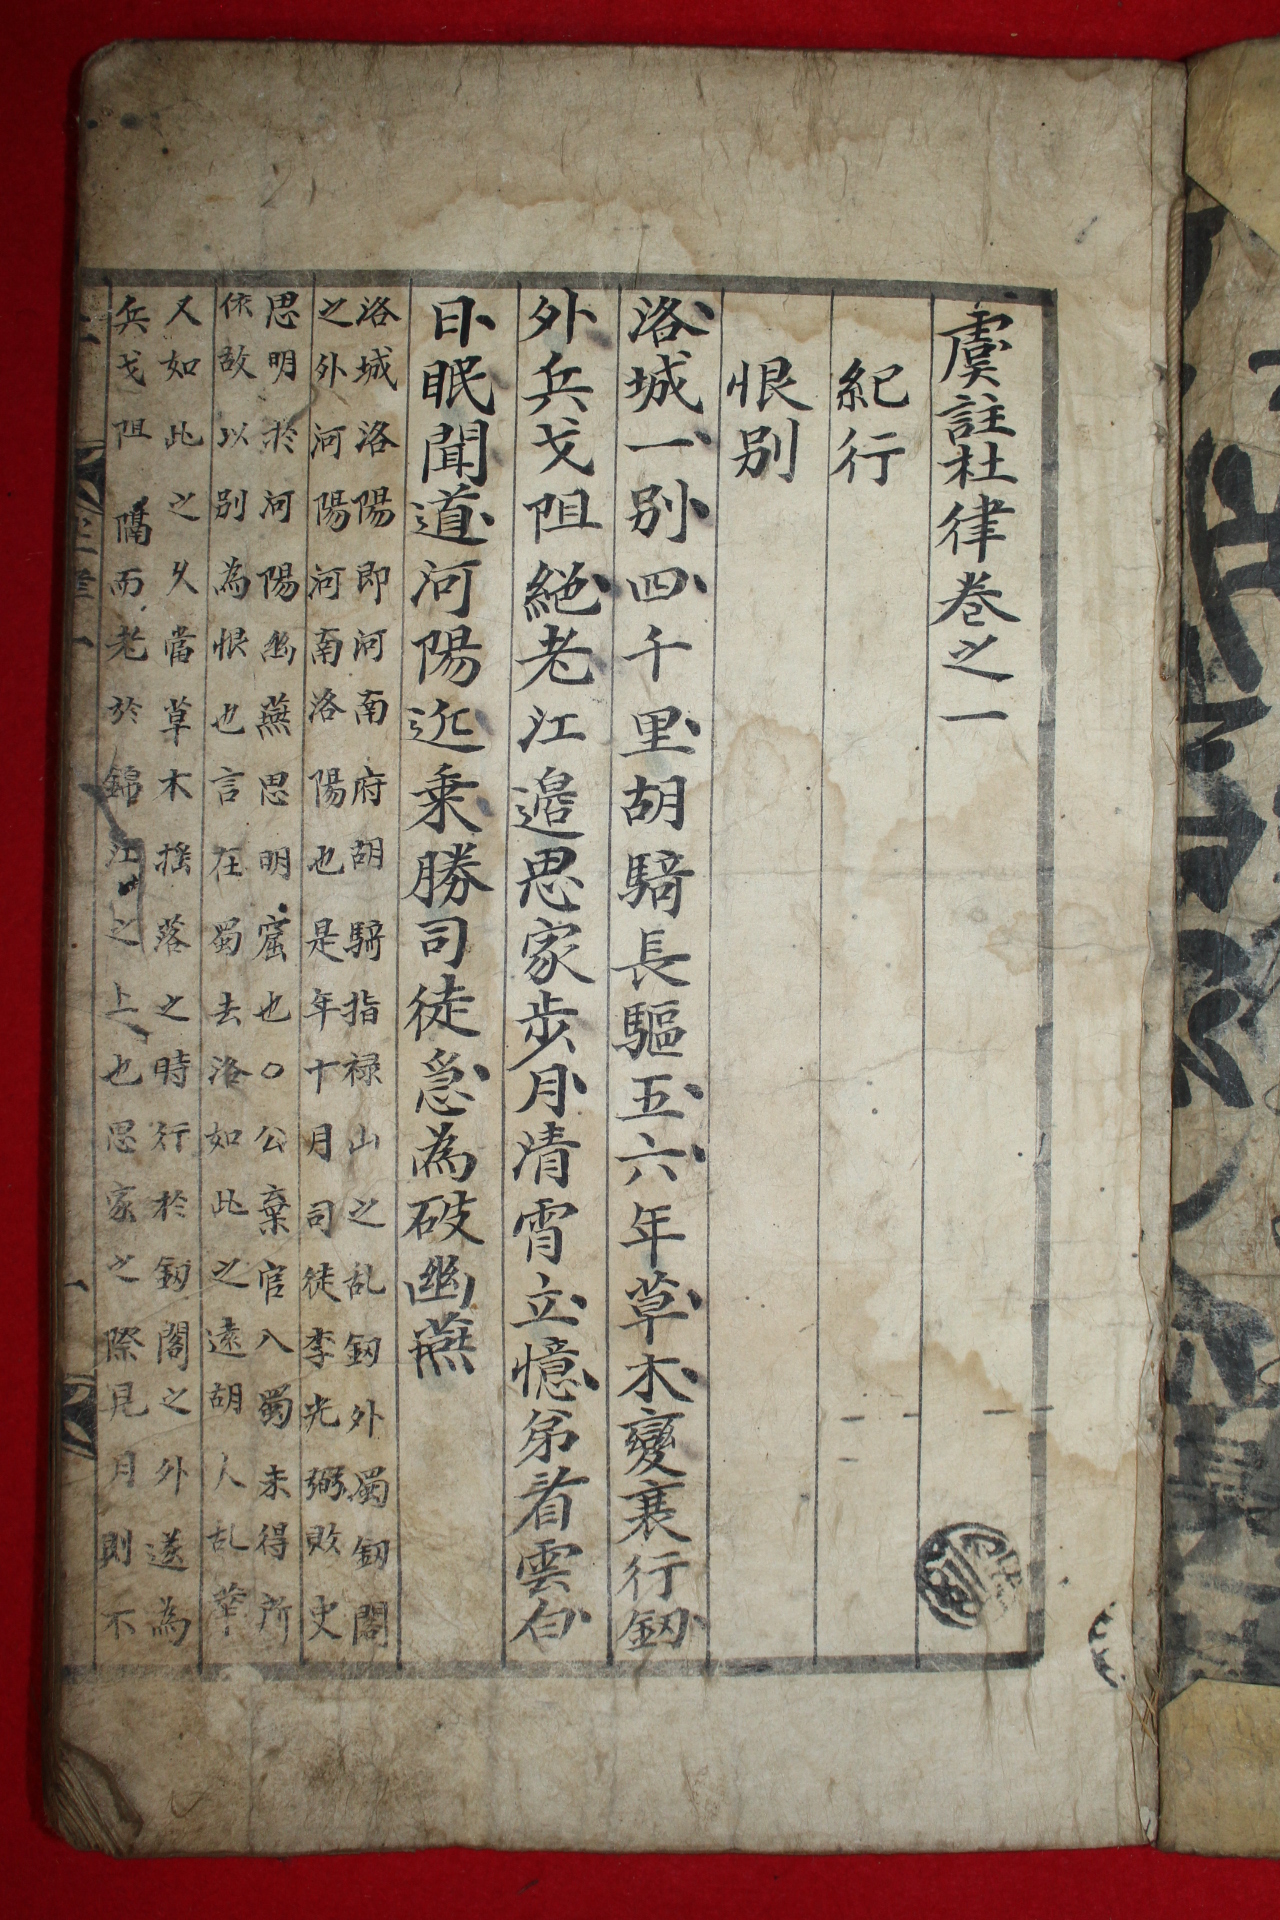 虞註杜律卷之一
紀行
恨別
洛城一別四千里胡騎長驅五六年草木變衰行釰
外兵戈阻絕老江邉思家步月清宵立憶弟看雲白
日眠聞道河陽近乘勝司徒急為破幽燕
洛城洛陽即河南府胡騎指禄山之乱釰外蜀釰閣
之外河陽河南洛陽也是年十月司徒李光弼敗史
思明於河陽幽燕思明窟也○公棄官入蜀未得所
依故以別為恨也言在蜀去洛如此之遠胡人乱華
又如此之久當草木搖落之時行於釰閣之外遂為
兵戈阻隔而老於錦江之上也思家之際見月則不